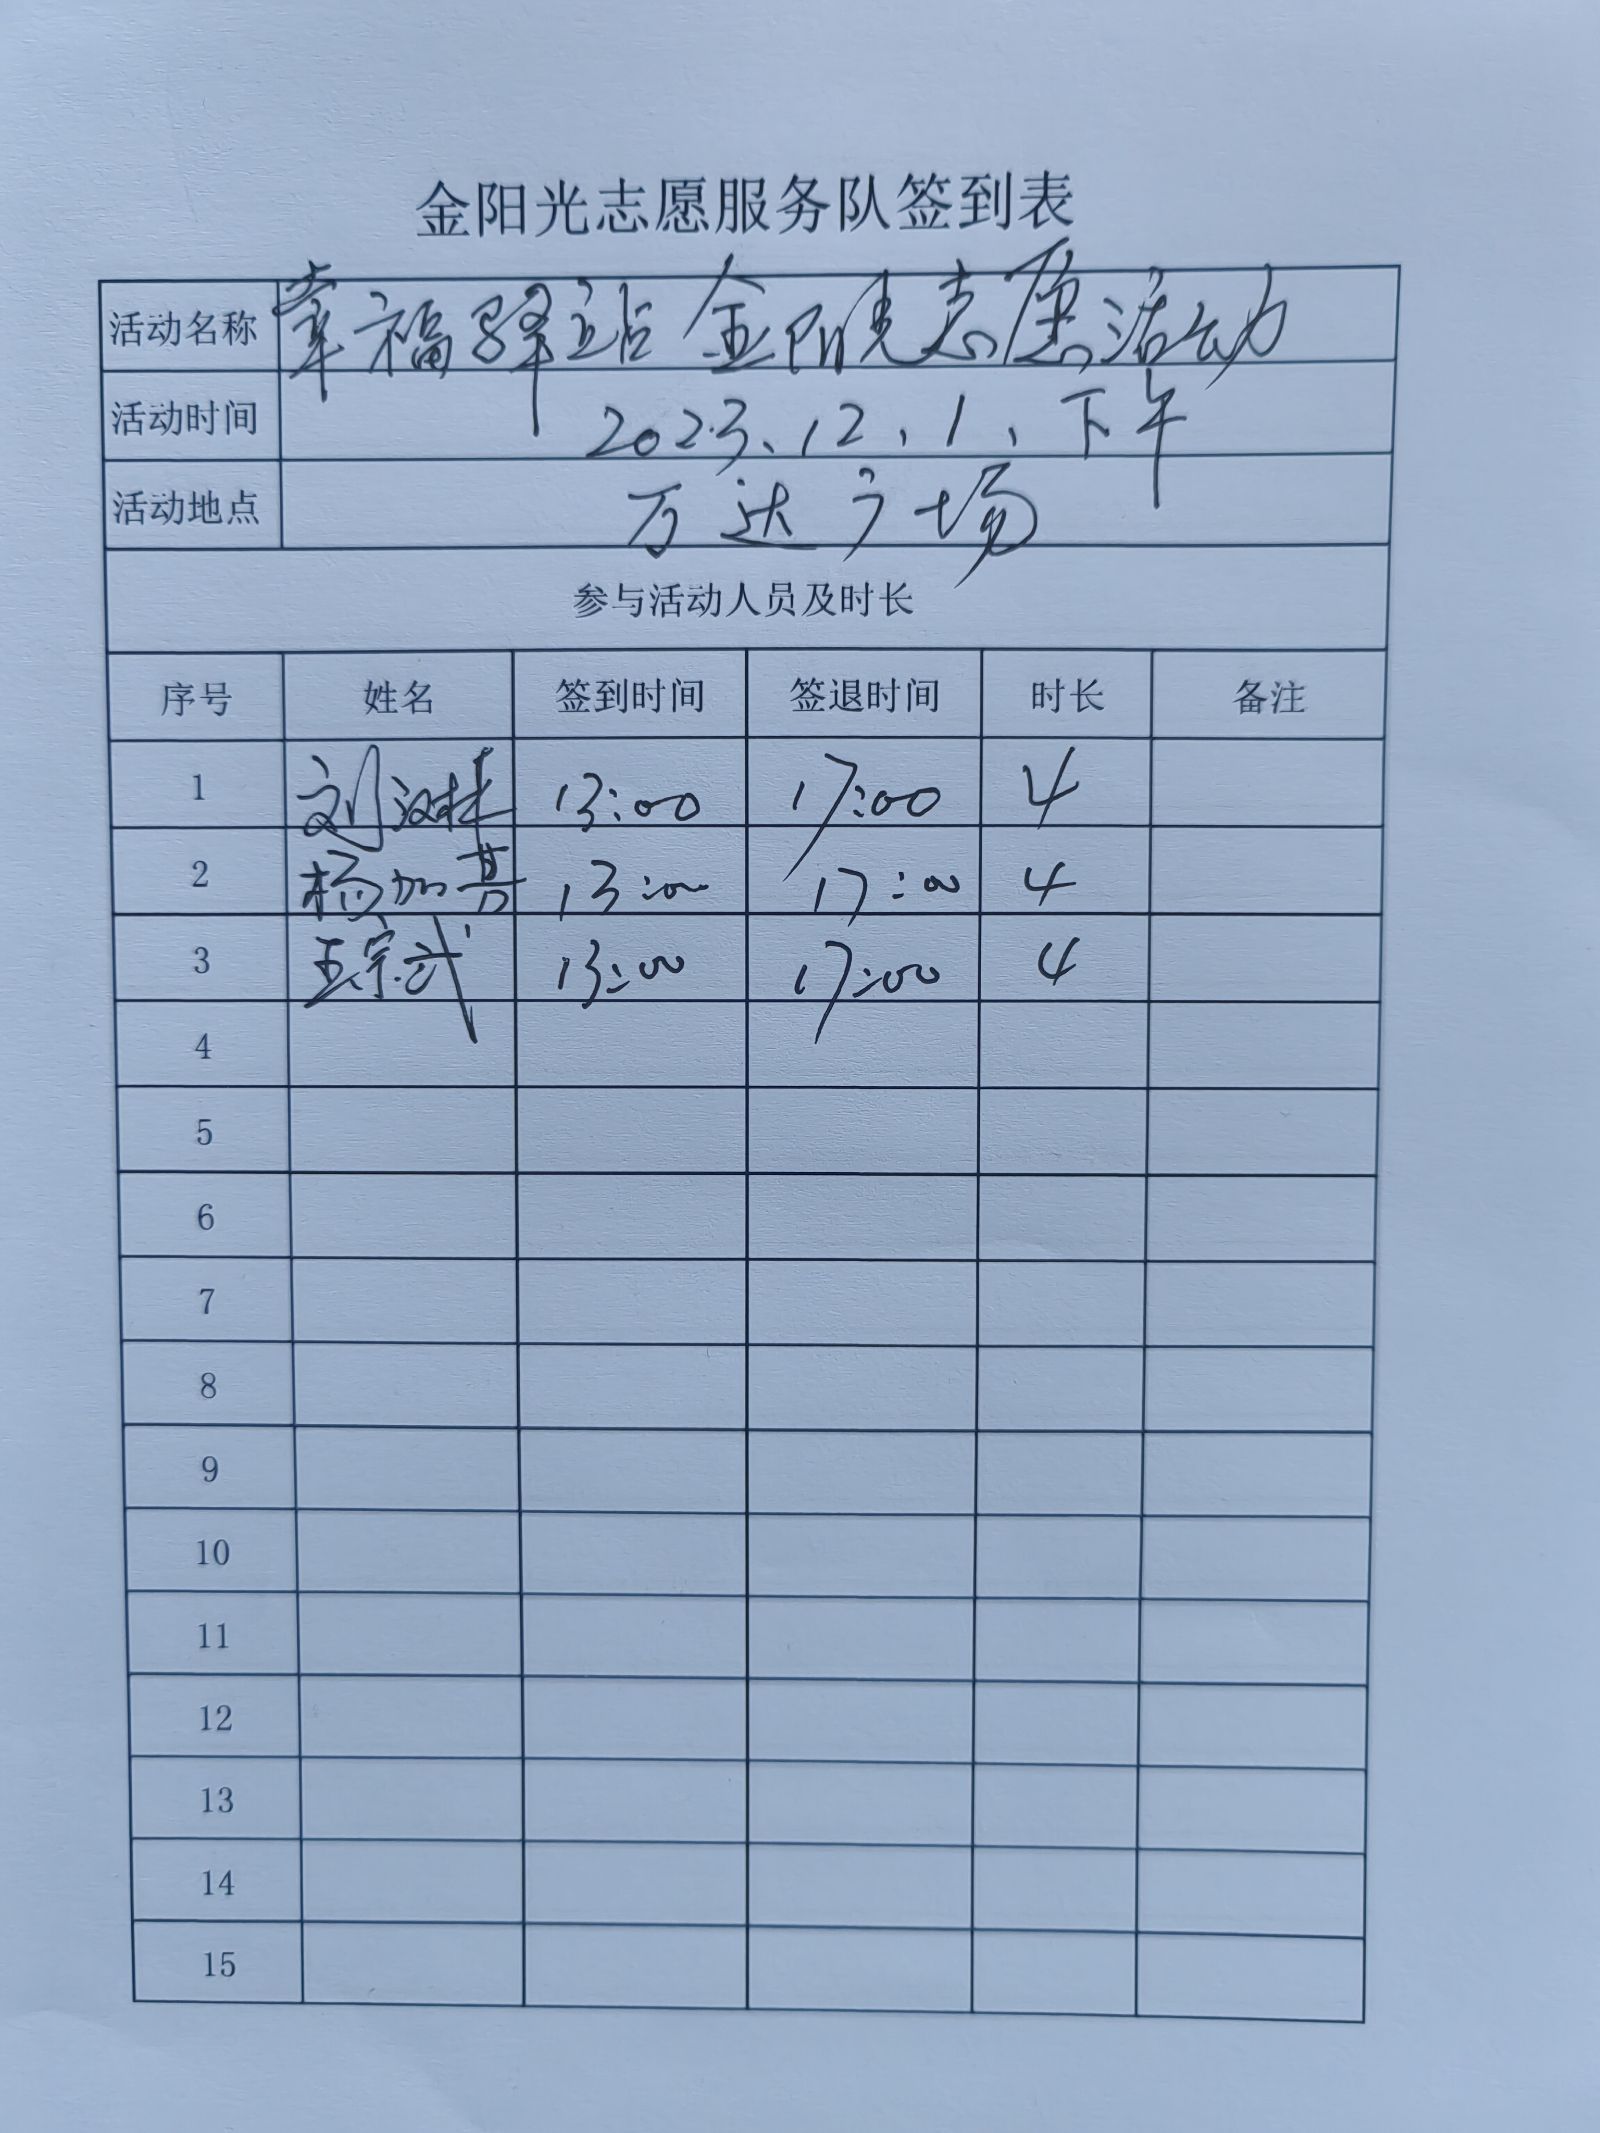 金阳光志愿服务队签到表
活动名称 幸福驿站金阳光志愿活动
活动时间 2023、12、1、下午
活动地点 万达广场
参与活动人员及时长
序号 姓名 签到时间 签退时间 时长 备注
1 刘汉林 13:00 17:00 4
2 杨加 13:00 17:00 4
3 王宗武 13:00 17:00 4
4
5
6
7
8
9
10
11
12
13
14
15